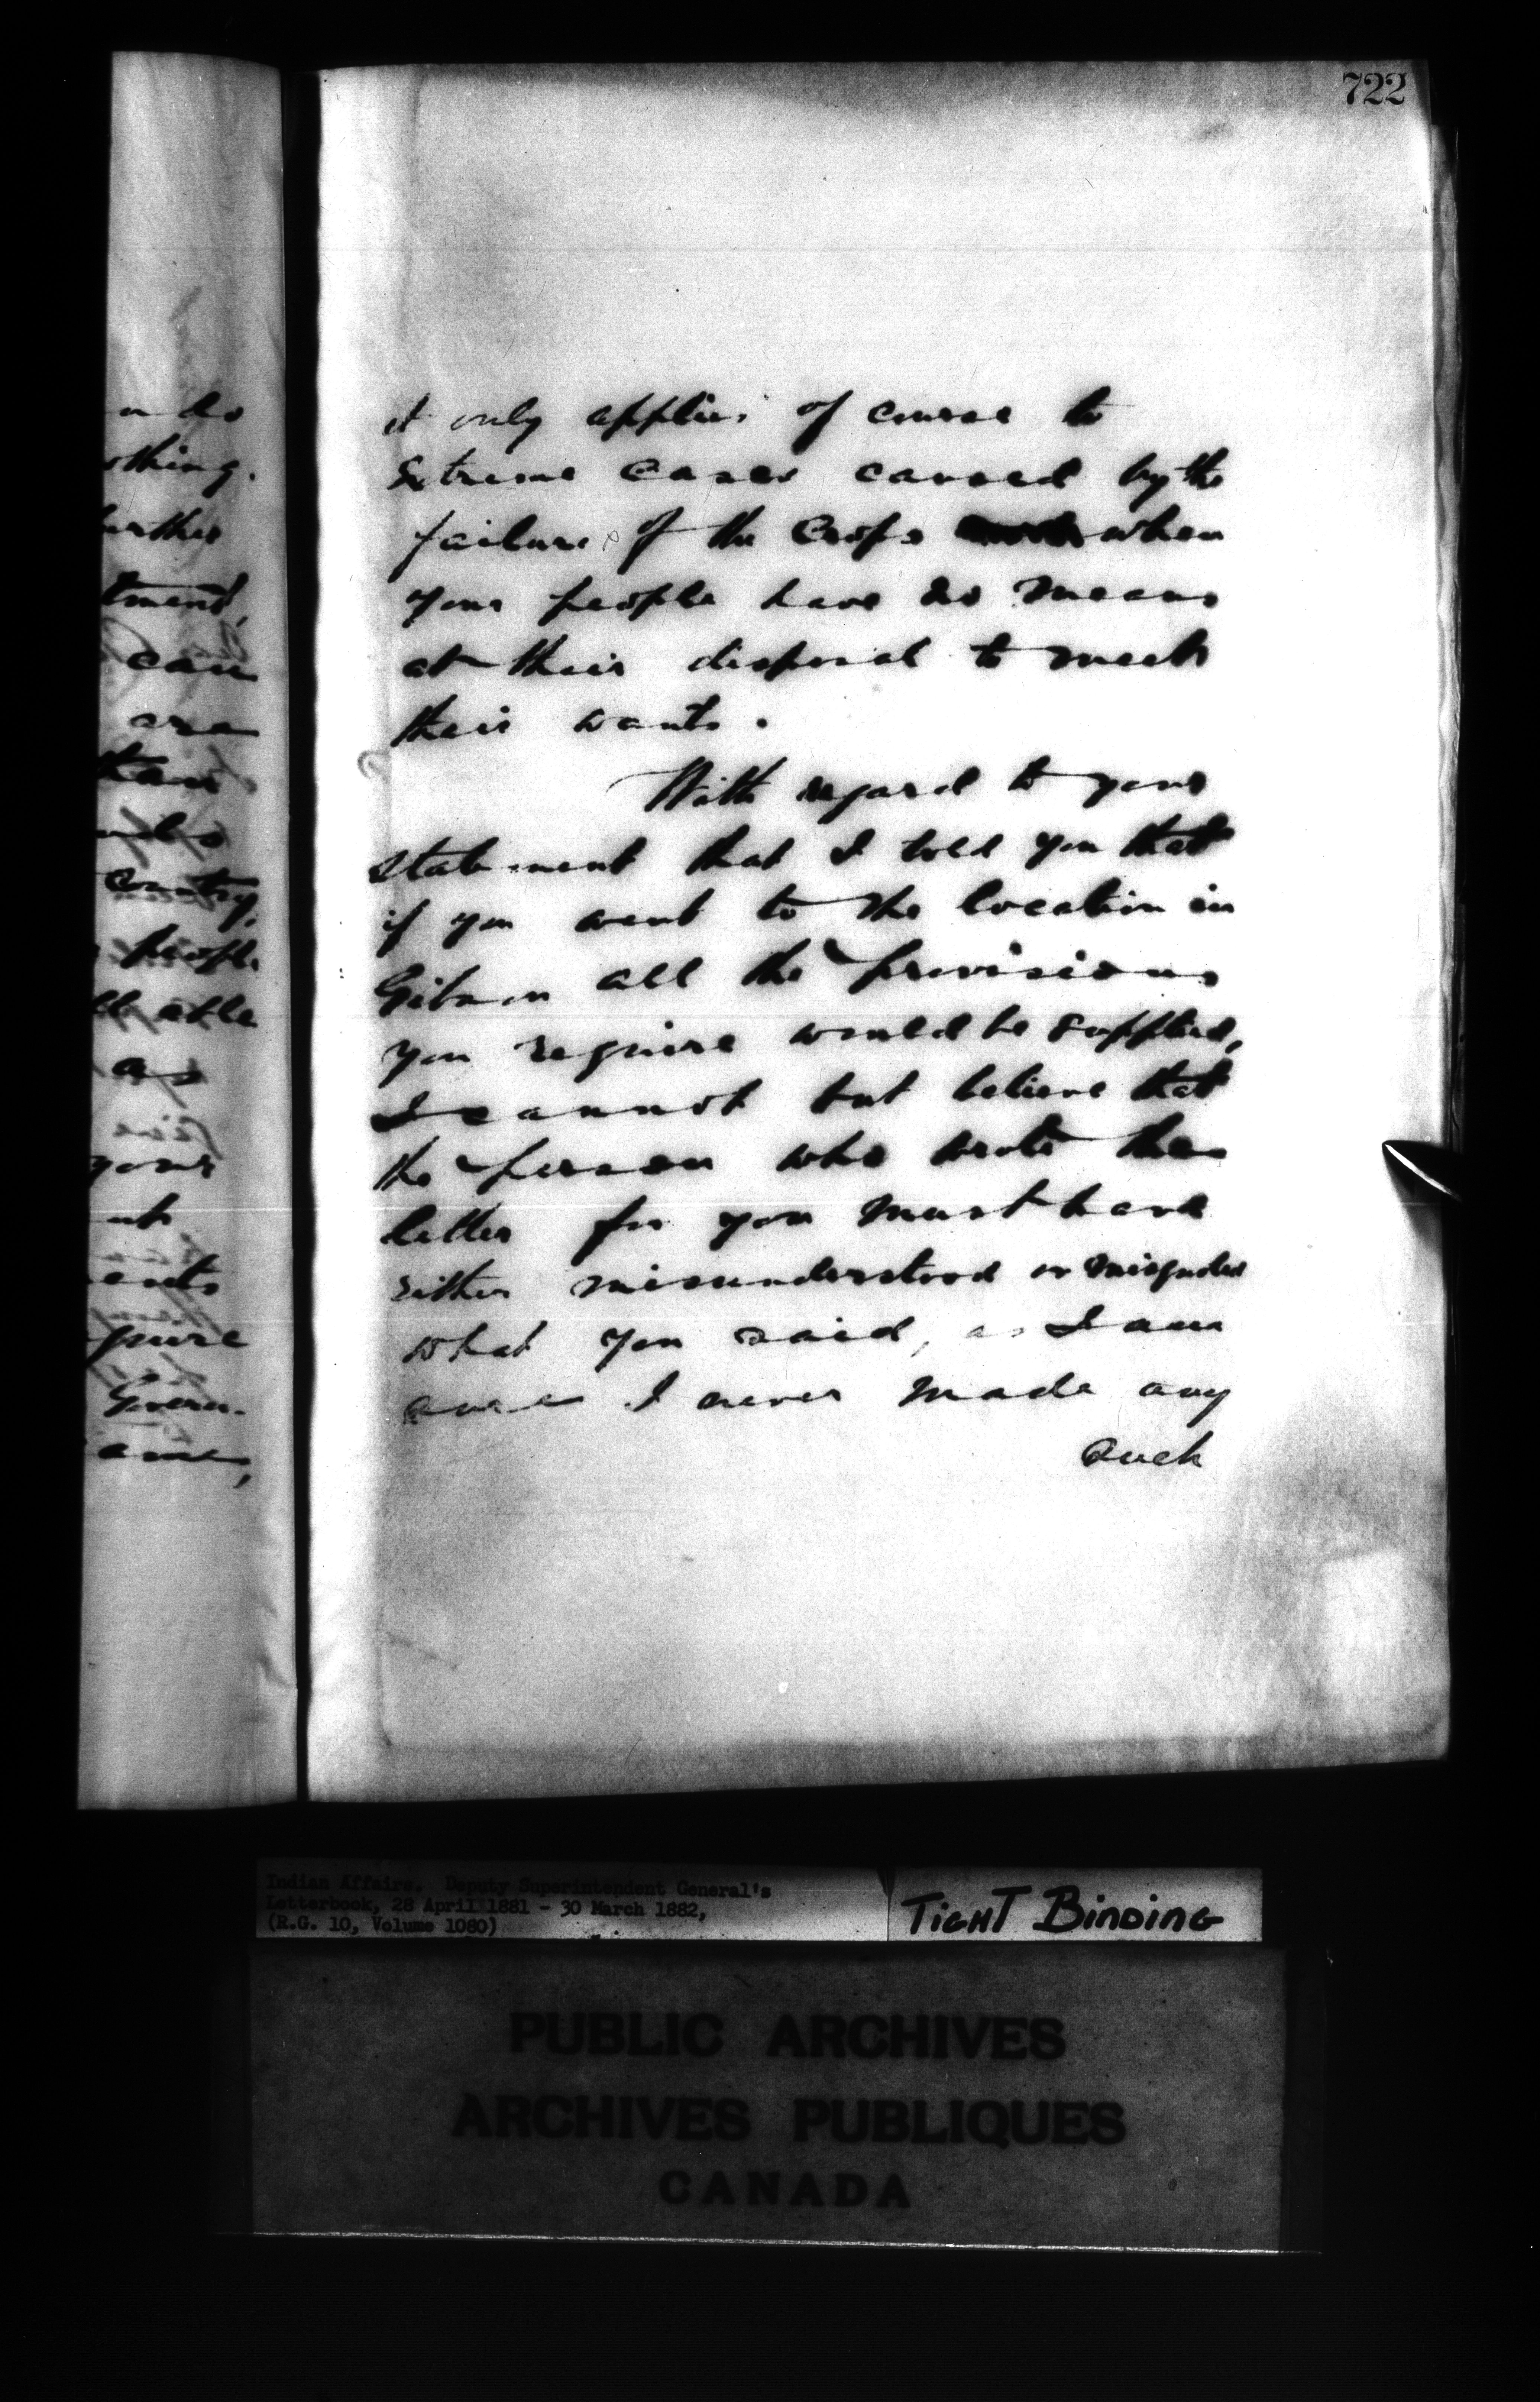 722
it only applies of course to
extreme cases caused by the
failure of the Crops when
your people have no means
at their disposal to meet
their wants.
With regard to your
statement that I told you that
if you went to the location in
Gibson all the provisions
you require would be supplied,
I cannot but believe that
the person who wrote the
letter for you must have
either misunderstood or misquoted
what you said, as I am
sure I never made any
such
do
othing.
urther
tment,
can
are
than
Country,
people
ll able
as
your
ents
Govern-
Indian Affairs. Deputy Superintendent General's
Letterbook, 28 April 1881 - 30 March 1882,
(R.G. 10, Volume 1080)
TIGHT BINDING
PUBLIC ARCHIVES
ARCHIVES PUBLIQUES
CANADA